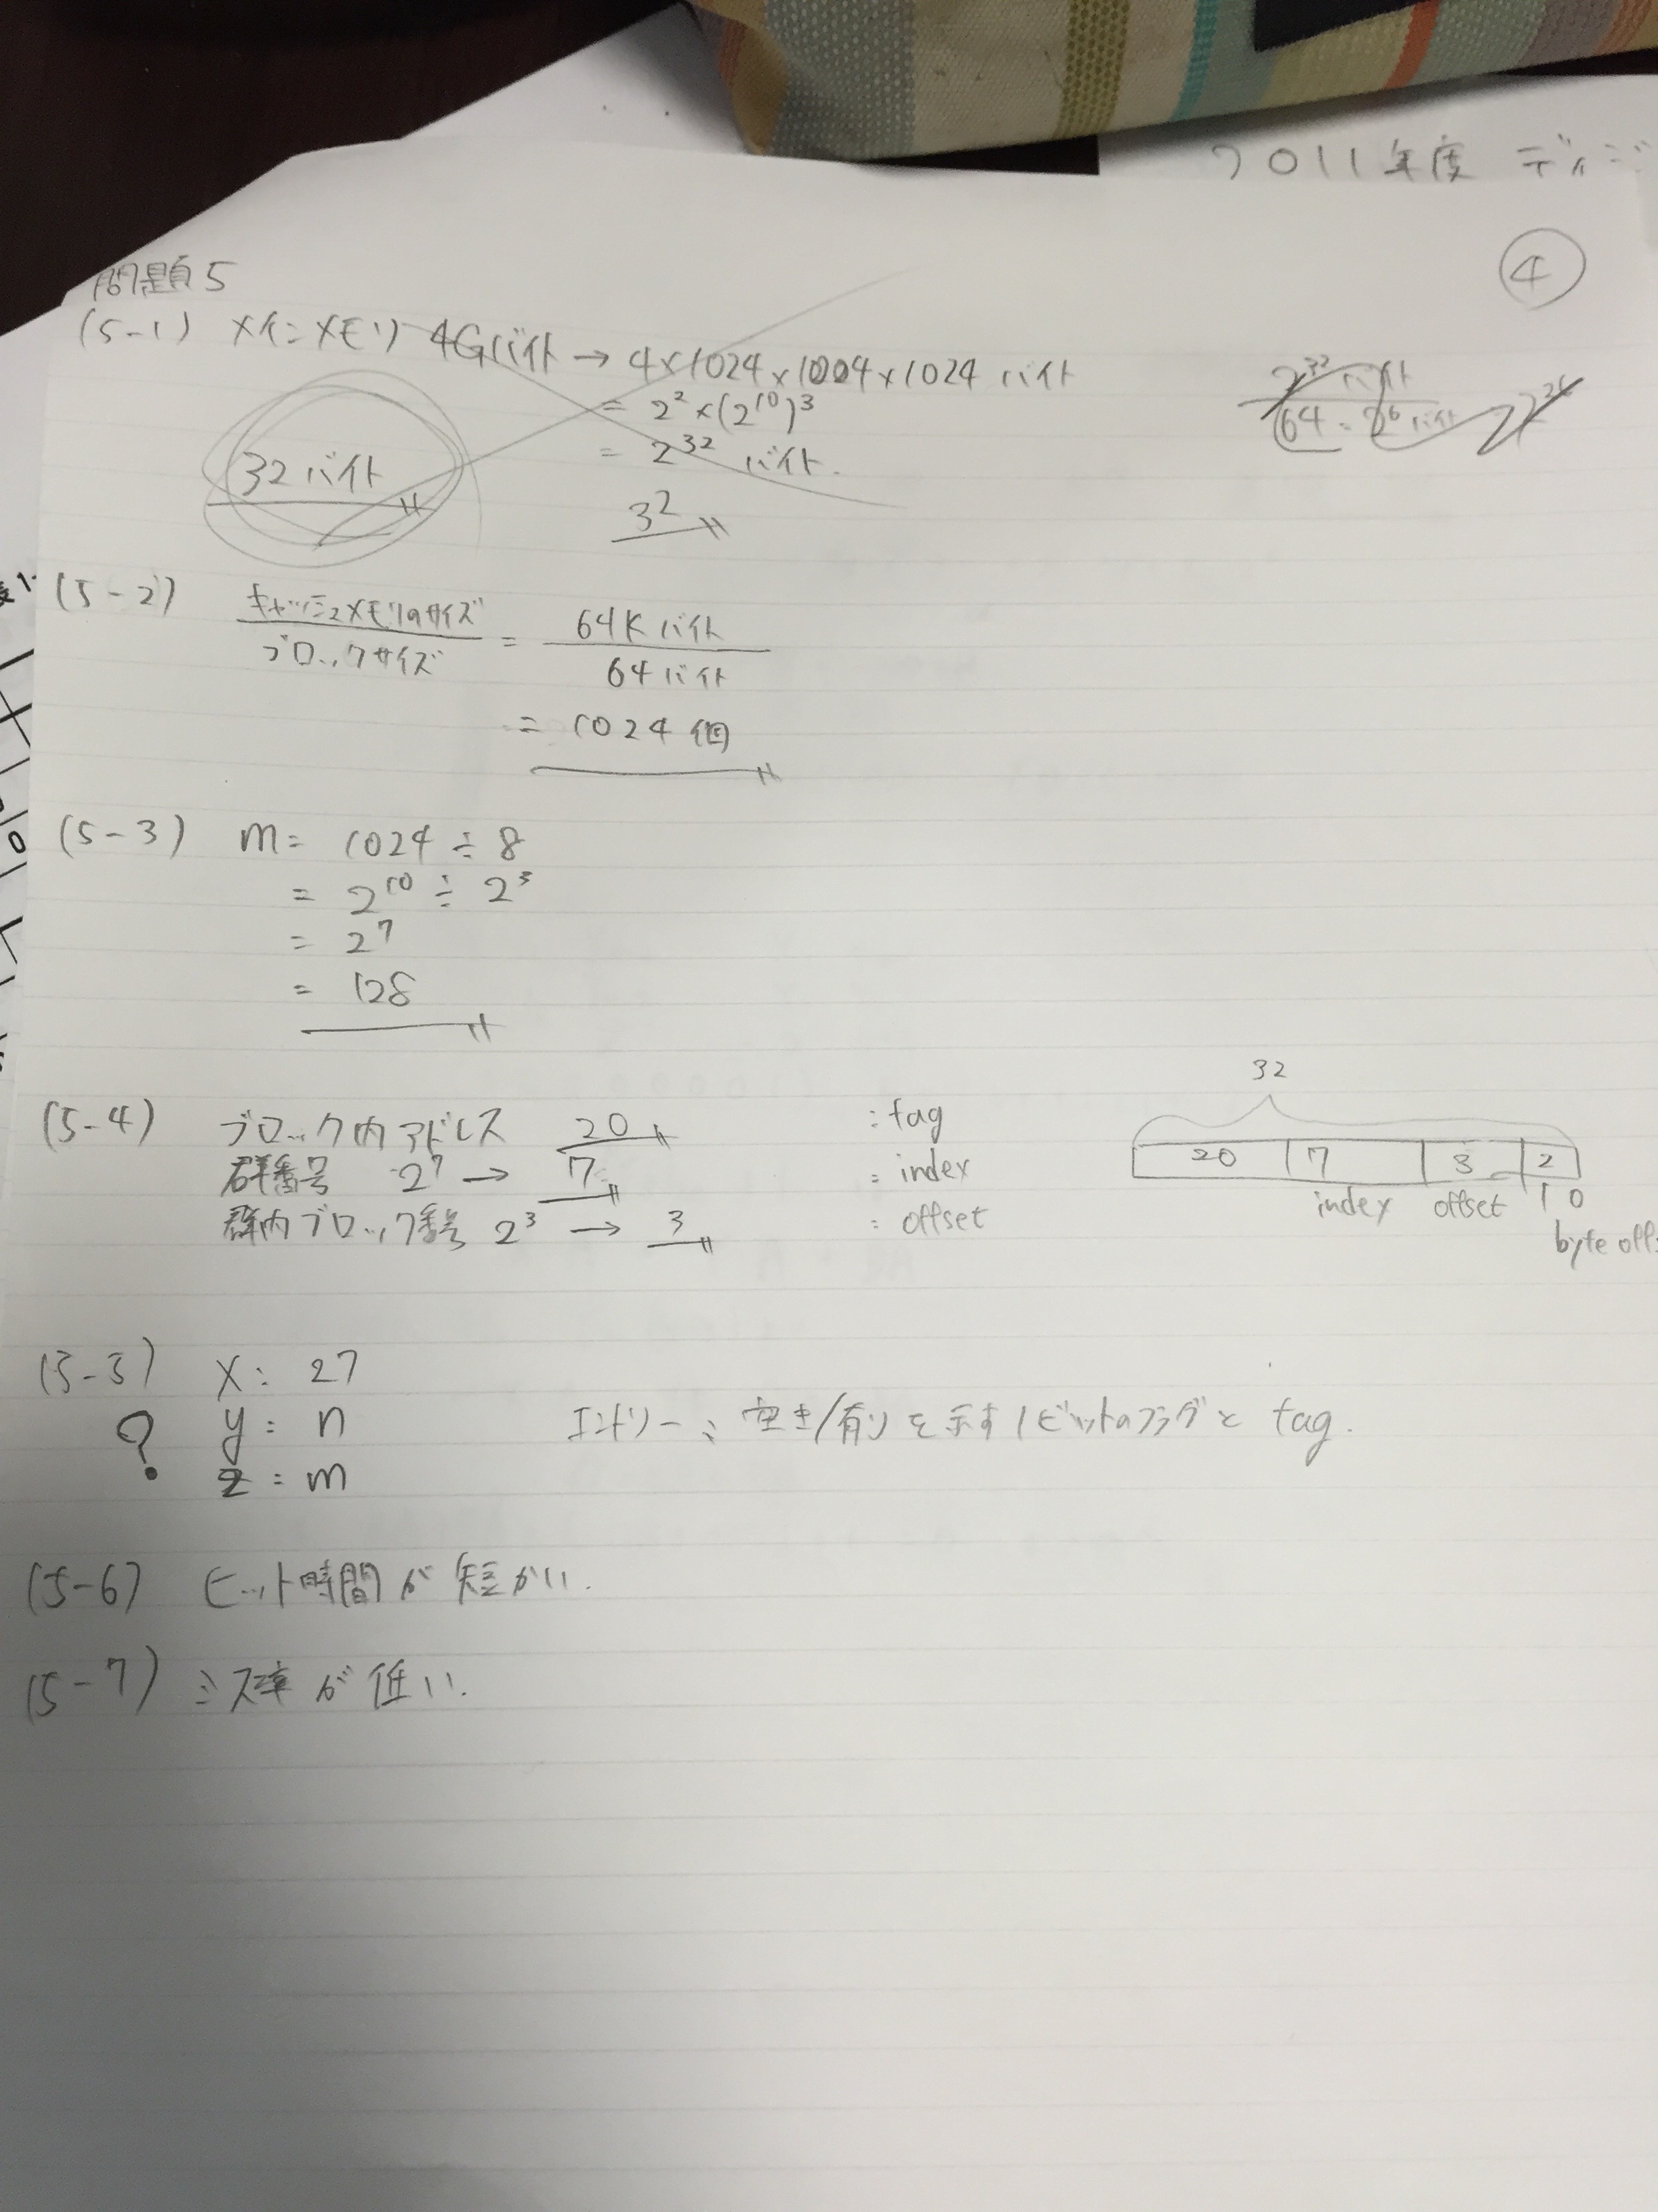 2011年度 ディジ
④
問題5
(5-1) メインメモリ 4Gバイト → 4×1024×1024×1024 バイト
= 2^2×(2^10)^3
= 2^32 バイト.
32バイト
32
2^32 バイト
64 = 2^6 バイト
2^26
(5-2) キャッシュメモリのサイズ / ブロックサイズ = 64Kバイト / 64バイト
= 1024個
(5-3) m = 1024 ÷ 8
= 2^10 ÷ 2^3
= 2^7
= 128
(5-4) ブロック内アドレス 20 : tag
群番号 2^7 → 7 : index
群内ブロック番号 2^3 → 3 : offset
32
20 7 3 2
index offset 1 0
byte off
(5-5) x : 27
? y : n
z : m
エントリー、空き/有りを示す1ビットのフラグと tag.
(5-6) ヒット時間が短かい.
(5-7) ミス率が低い.